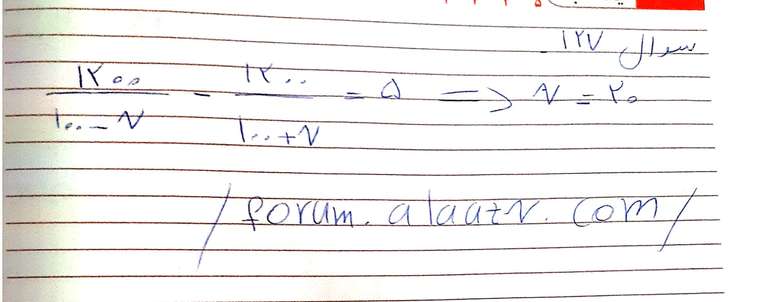 سوال ۱۲۷
۱۲۰۰/(۱۰۰-v) - ۱۲۰۰/(۱۰۰+v) = ۵ ⇒ v = ۲۰
/forum.alaatv.com/